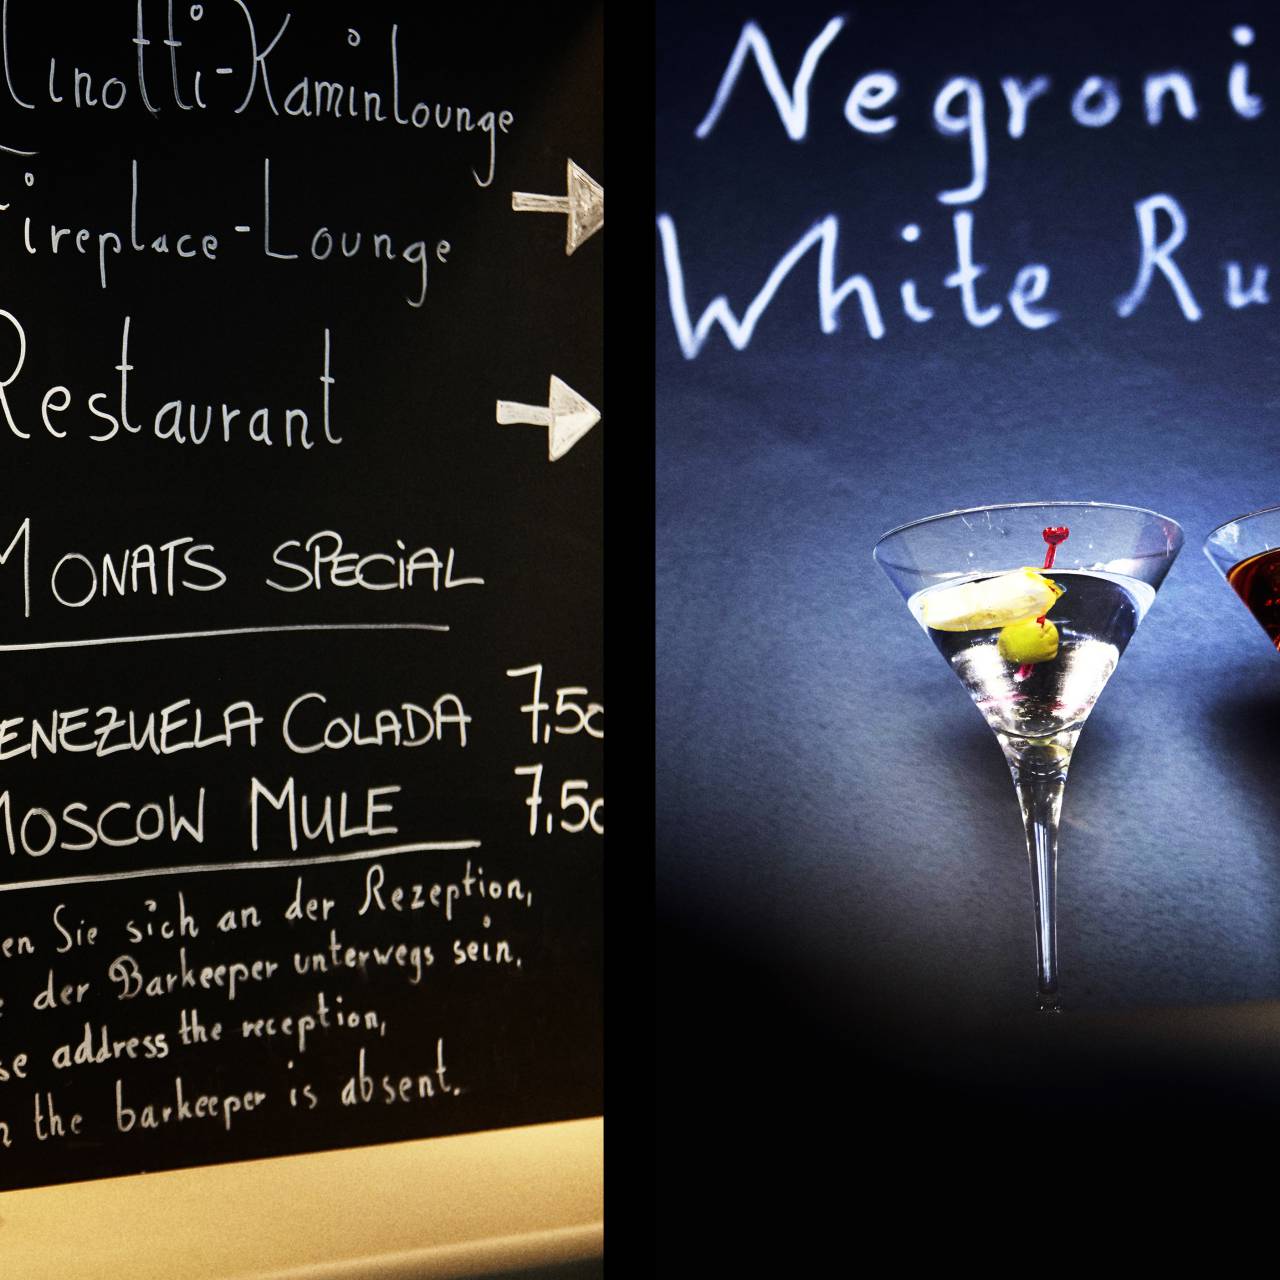 Kaminlounge
Fireplace-Lounge
Restaurant
MONATS SPECIAL
VENEZUELA COLADA 7,50
MOSCOW MULE 7,50
en Sie sich an der Rezeption,
der Barkeeper unterwegs sein.
se address the reception,
n the barkeeper is absent.
Negroni
White Ru